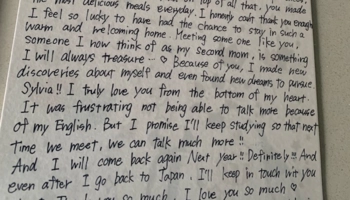 most delicious meals everyday. I honestly can't thank you enough
I feel so lucky to have had the chance to stay in such a
warm and welcoming home. Meeting some one like you,
someone I now think of as my second mom, is something
I will always treasure-- ♡ Because of you, I made new
discoveries about myself and even found new dreams to pursue
Sylvia!! I truly love you from the bottom of my heart.
It was frustrating not being able to talk more because
of my English. But I promise I'll keep studying so that next
time we meet, we can talk much more!!
And I will come back again Next year!! Definitely!! And
even after I go back to Japan, I'll keep in touch wit you
so much, I love you so much ♡